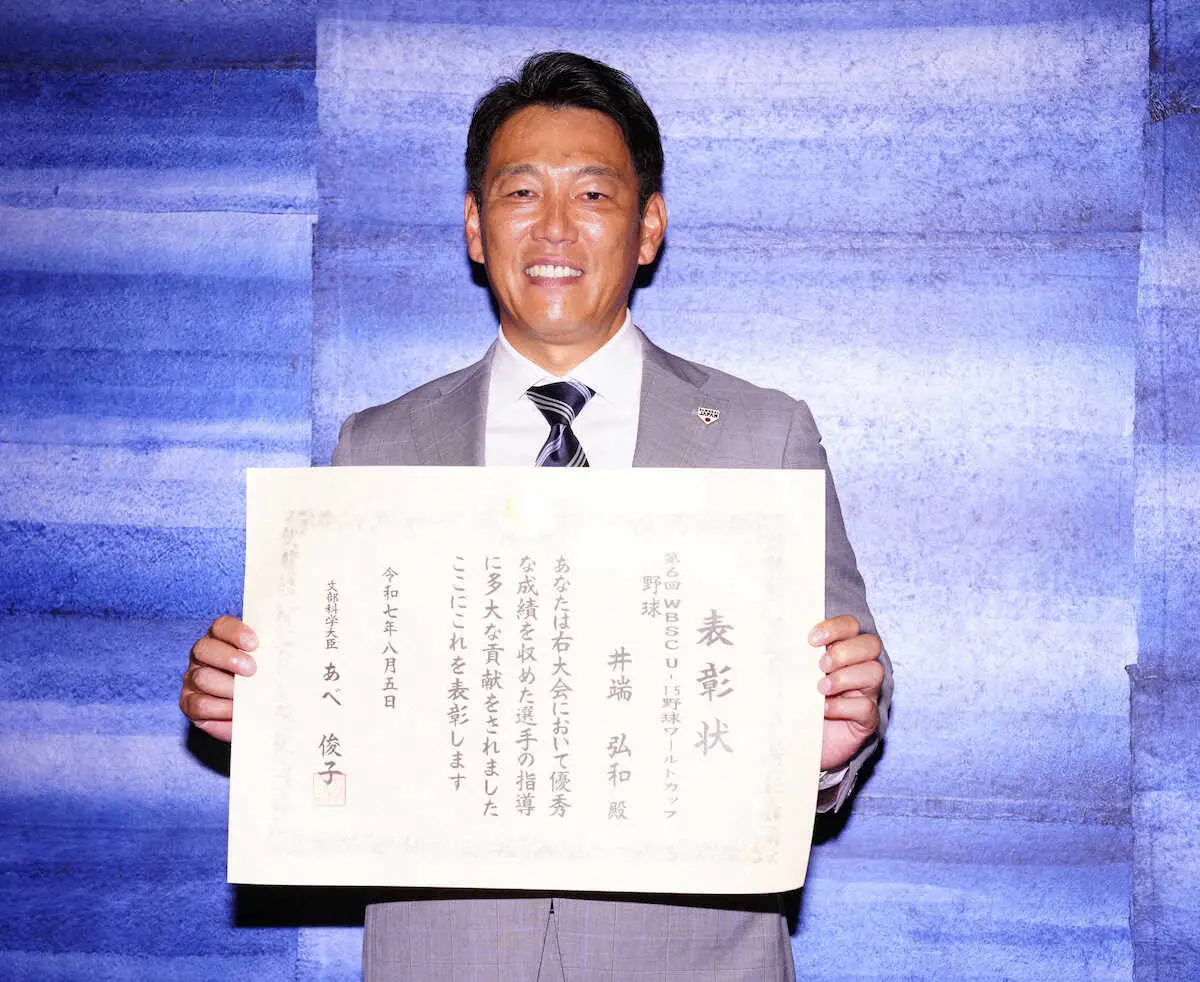 表彰状
第6回WBSC U-15野球ワールドカップ
野球
井端 弘和 殿
あなたは右大会において優秀
な成績を収めた選手の指導
に多大な貢献をされました
ここにこれを表彰します
令和七年八月五日
文部科学大臣 あべ 俊子
JAPAN